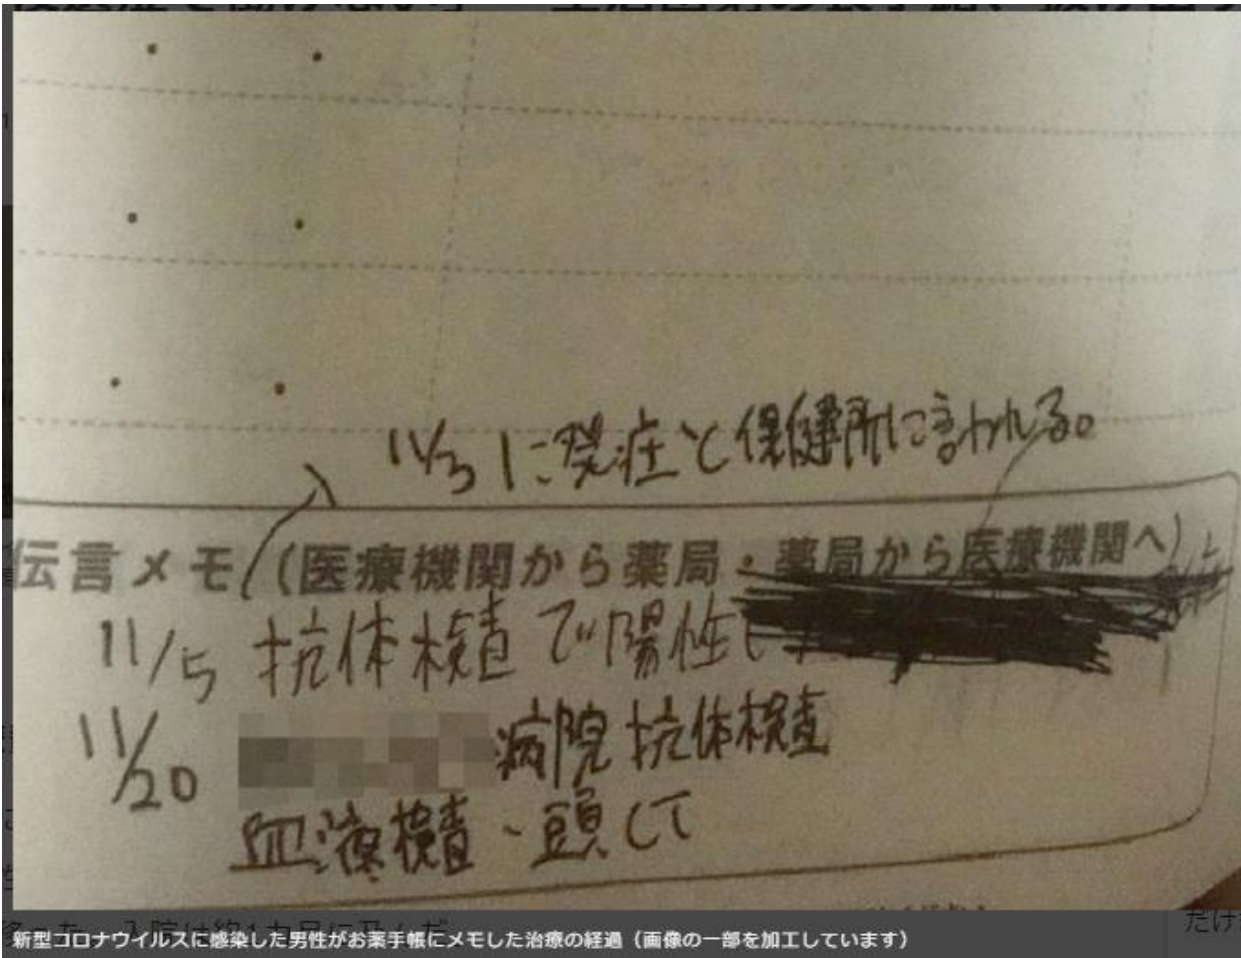 11/3に発症と保健所に言われる。
伝言メモ(医療機関から薬局・薬局から医療機関へ)
11/5 抗体検査で陽性
11/20 病院抗体検査
血液検査、頭CT
新型コロナウイルスに感染した男性がお薬手帳にメモした治療の経過（画像の一部を加工しています）
だけ